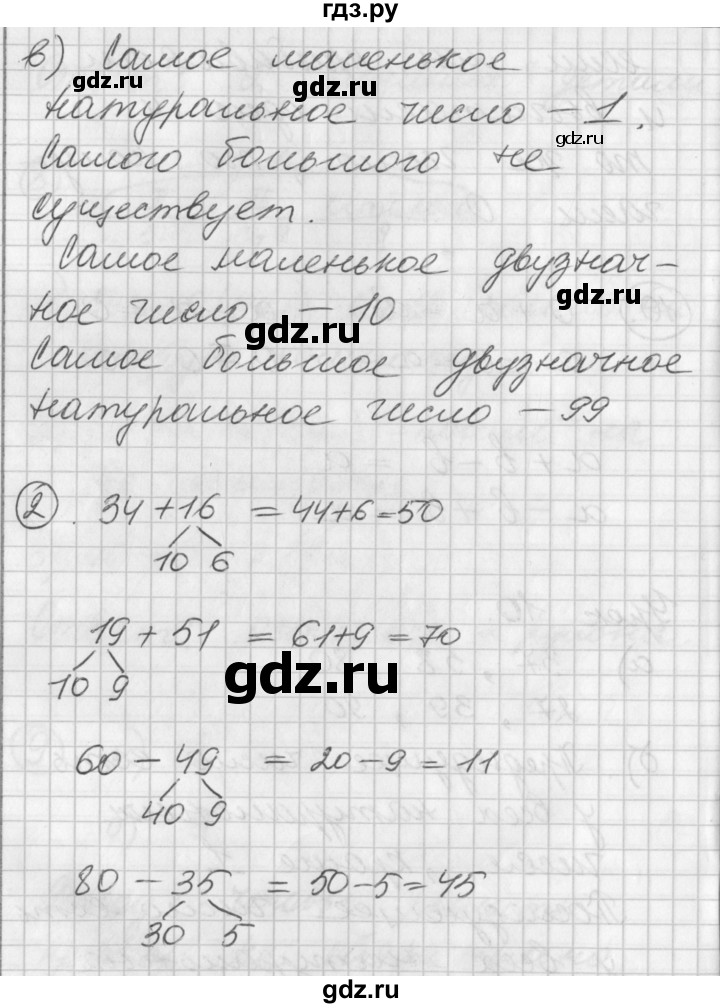 гдз.ру
в) Самое маленькое
gdz.ru
gdz.ru
натуральное число – 1.
gdz.ru
Самого большого не
существует.
Самое маленькое двузнач-
gdz.ru
ное число – 10
gdz.ru
Самое большое двузначное
натуральное число – 99
2. 34 + 16 = 44 + 6 = 50
10 6
19 + 51 = 61 + 9 = 70
gdz.ru
10 9
60 – 49 = 20 – 9 = 11
40 9
80 – 35 = 50 – 5 = 45
30 5
gdz.ru
gdz.ru
gdz.ru